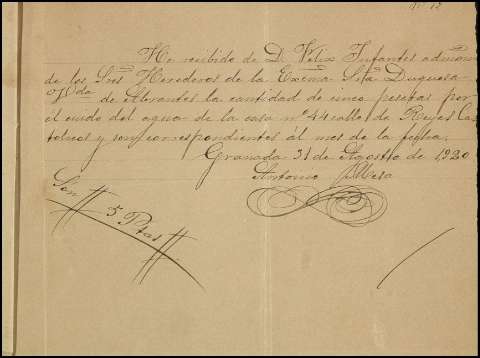 Nº 18
He recibido de D. Felix Infantes admon
de los Sres Herederos de la Excma Sra Duquesa
Vda de Abrantes la cantidad de cinco pesetas por
el cuido del agua de la casa nº 44 calle de Reyes Ca
tolicos y son correspondientes ál mes de la fecha.
Granada 31 de Agosto de 1920
Antonio Mesa
Son # 5 Ptas #